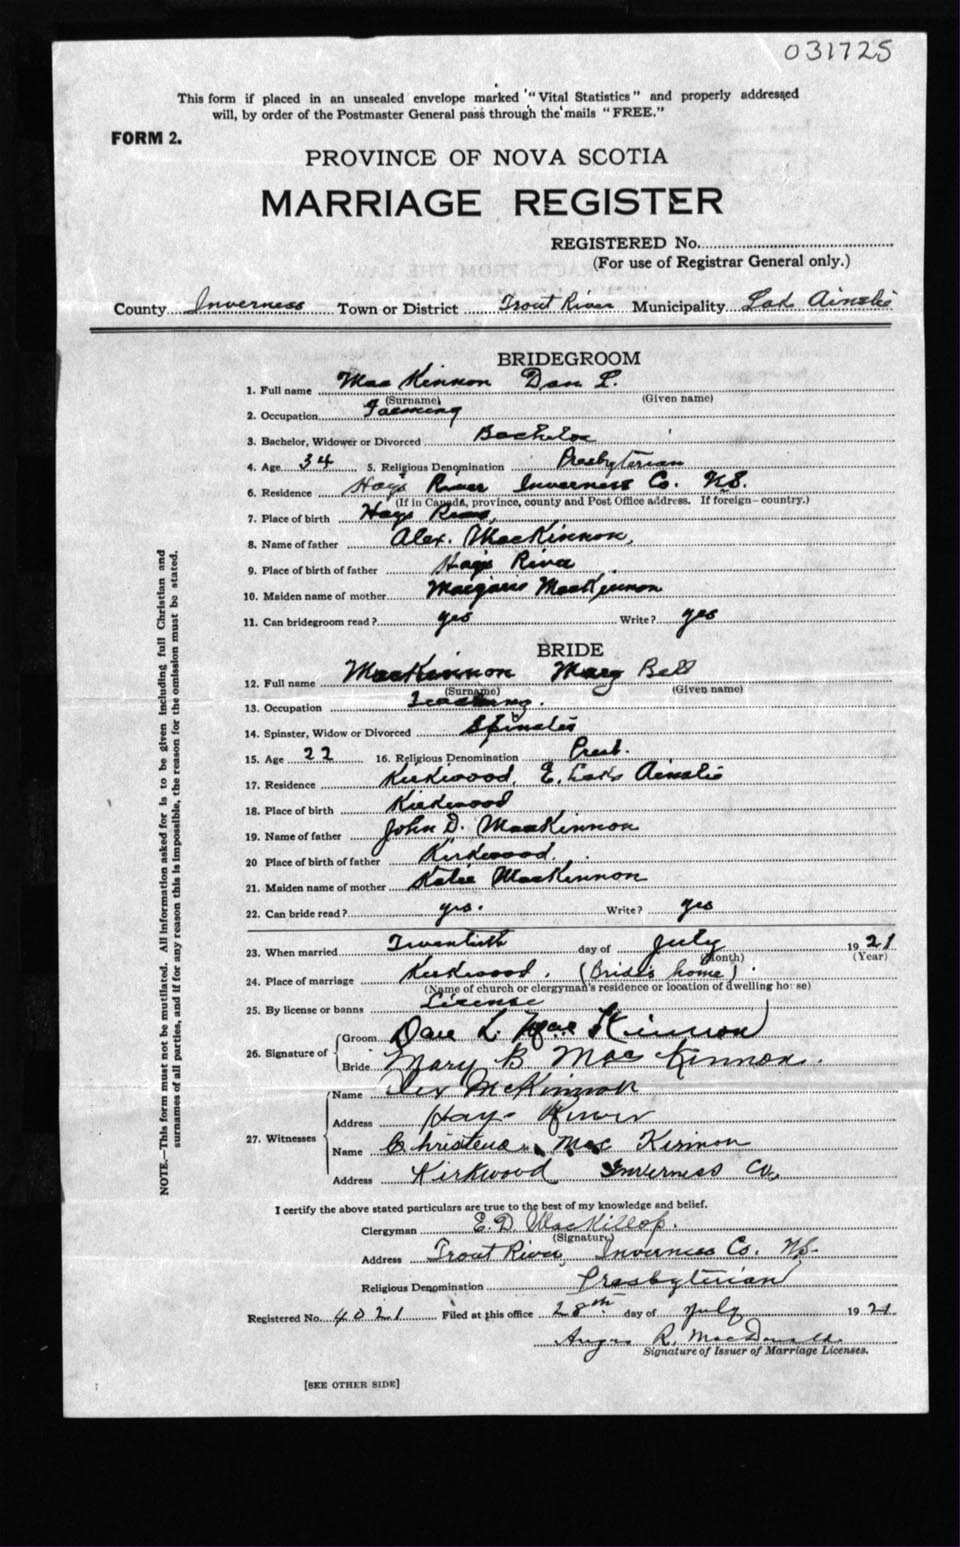 031725
This form if placed in an unsealed envelope marked "Vital Statistics" and properly addressed
will, by order of the Postmaster General pass through the mails "FREE."
FORM 2.
PROVINCE OF NOVA SCOTIA
MARRIAGE REGISTER
REGISTERED No.
(For use of Registrar General only.)
County Inverness Town or District Trout River Municipality Lake Ainslie
BRIDEGROOM
1. Full name MacKinnon Dan L.
(Surname) (Given name)
2. Occupation Farming
3. Bachelor, Widower or Divorced Bachelor
4. Age 34 5. Religious Denomination Presbyterian
6. Residence Hays River Inverness Co. N.S.
(If in Canada, province, county and Post Office address. If foreign—country.)
7. Place of birth Hays River
8. Name of father Alex. MacKinnon,
9. Place of birth of father Hays River
10. Maiden name of mother MacKinnon
11. Can bridegroom read? yes Write? yes
BRIDE
12. Full name MacKinnon Mary Bell
(Surname) (Given name)
13. Occupation Teaching.
14. Spinster, Widow or Divorced Spinster
15. Age 22 16. Religious Denomination Presb.
17. Residence Kirkwood, E. Lake Ainslie
18. Place of birth Kirkwood
19. Name of father John D. MacKinnon
20 Place of birth of father Kirkwood.
21. Maiden name of mother Katie MacKinnon
22. Can bride read? yes. Write? yes
23. When married Twentieth day of July 1921
(Month) (Year)
24. Place of marriage Kirkwood. (Bride's home).
(Name of church or clergyman's residence or location of dwelling house)
25. By license or banns License
26. Signature of Groom Dan L. MacKinnon
Bride Mary B. MacKinnon.
27. Witnesses Name Alex McKinnon
Address Hays River
Name Christena MacKinnon
Address Kirkwood Inverness Co.
I certify the above stated particulars are true to the best of my knowledge and belief.
Clergyman E. D. MacKillop.
(Signature)
Address Trout River, Inverness Co. N.S.
Religious Denomination Presbyterian
Registered No. 4021 Filed at this office 28th day of July 1921
Angus R. MacDonald
Signature of Issuer of Marriage Licenses.
[SEE OTHER SIDE]
NOTE.—This form must not be mutilated. All information asked for is to be given including full Christian and
surnames of all parties, and if for any reason this is impossible, the reason for the omission must be stated.